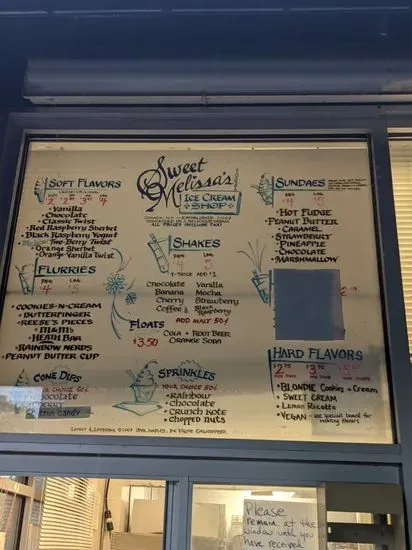 Sweet
Melissa's
ICE CREAM
SHOP
ALL PRICES INCLUDE TAX!
SOFT FLAVORS
Vanilla
Chocolate
Classic Twist
Red Raspberry Sherbet
Black Raspberry Yogurt
Two-Berry Twist
Orange Sherbet
Orange-Vanilla Twist
FLURRIES
COOKIES-N-CREAM
BUTTERFINGER
REESE'S PIECES
M&M's
HEATH BAR
RAINBOW NERDS
PEANUT BUTTER CUP
CONE DIPS
YOUR CHOICE 50¢
Chocolate
cotton candy
SHAKES
REG. LRG.
4 5
Y-THICK ADD $1
Chocolate Vanilla
Banana Mocha
Cherry Strawberry
Coffee Black Raspberry
ADD MALT 50¢
FLOATS
$3.50
COLA ROOT BEER
ORANGE SODA
SPRINKLES
YOUR CHOICE 50¢
Rainbow
Chocolate
CRUNCH KOTE
CHOPPED NUTS
SUNDAES
REG. LRG.
4 5
HOT FUDGE
PEANUT BUTTER
CARAMEL
STRAWBERRY
PINEAPPLE
CHOCOLATE
MARSHMALLOW
HARD FLAVORS
BLONDIE Cookies + Cream
SWEET CREAM
Lemon Ricotta
VEGAN - see special board for
rotating flavors
LAYOUT & LETTERING ©2009
Please
remain at the
window until you
have received